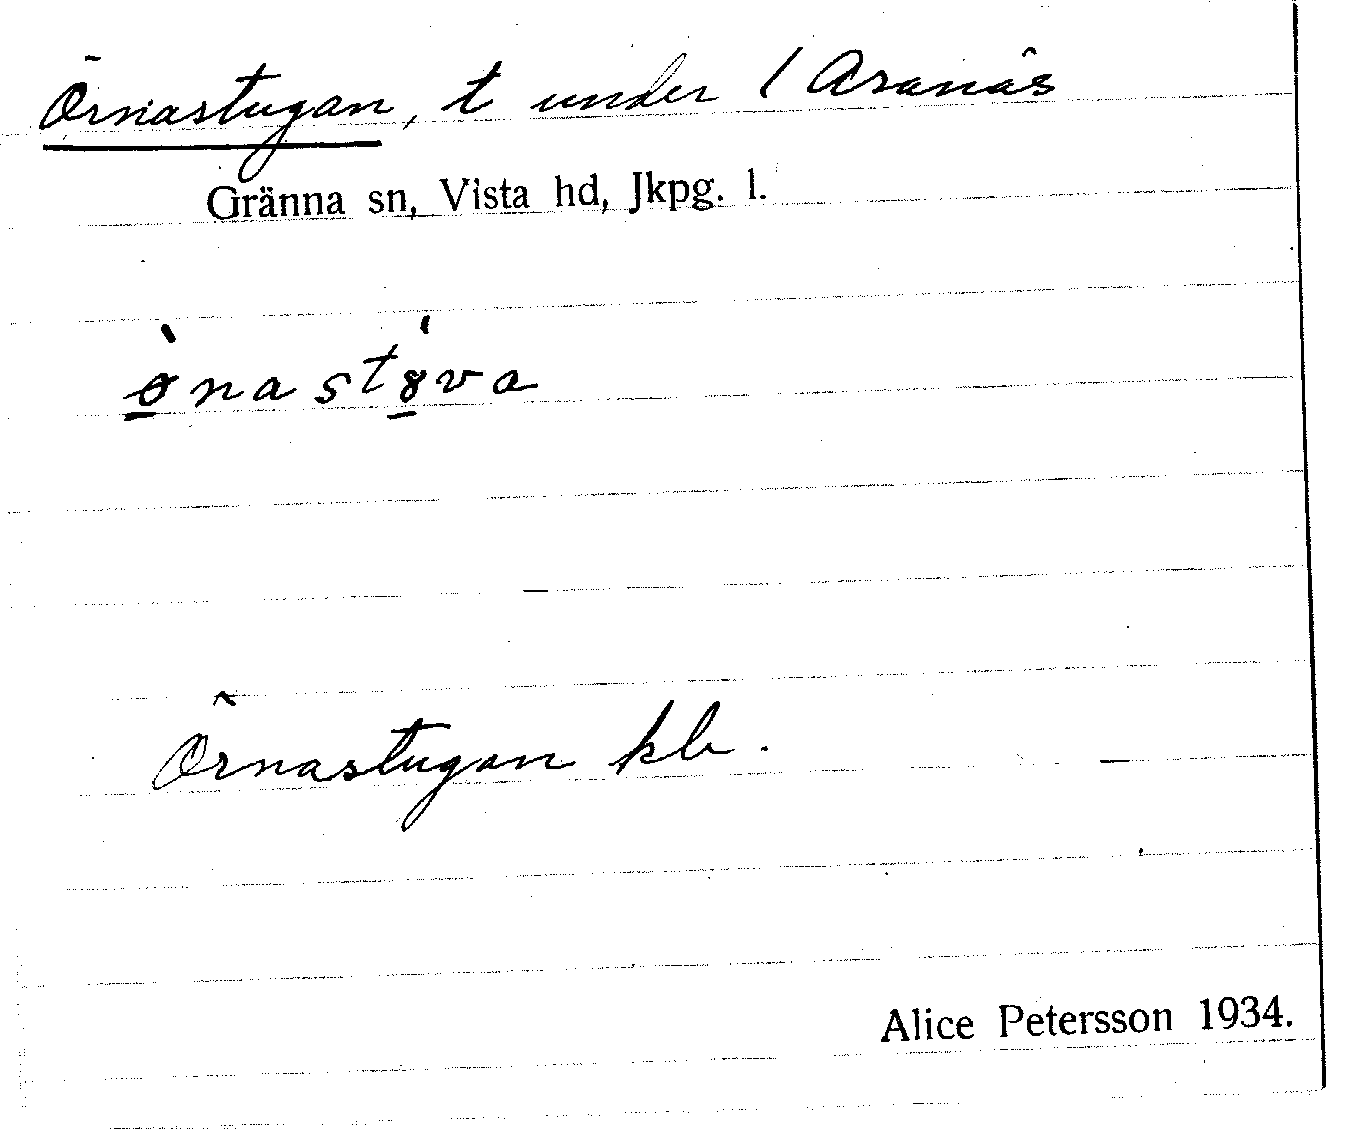 Örnastugan, t under 1 Aranäs
Gränna sn, Vista hd, Jkpg. l.
Örnastugan kb.
Alice Petersson 1934.